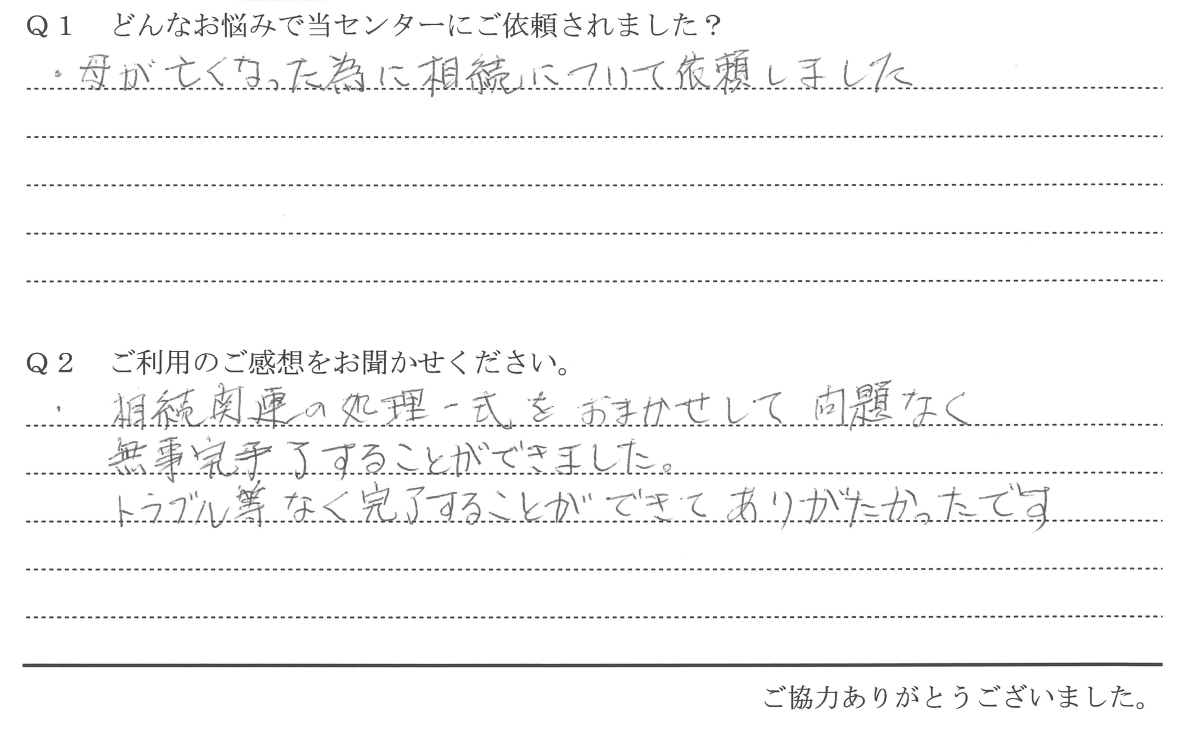 Q1 どんなお悩みで当センターにご依頼されました?
・母が亡くなった為に相続について依頼しました
Q2 ご利用のご感想をお聞かせください。
・ 相続関連の処理一式をおまかせして問題なく
無事完了することができました。
トラブル等なく完了することができてありがたかったです
ご協力ありがとうございました。